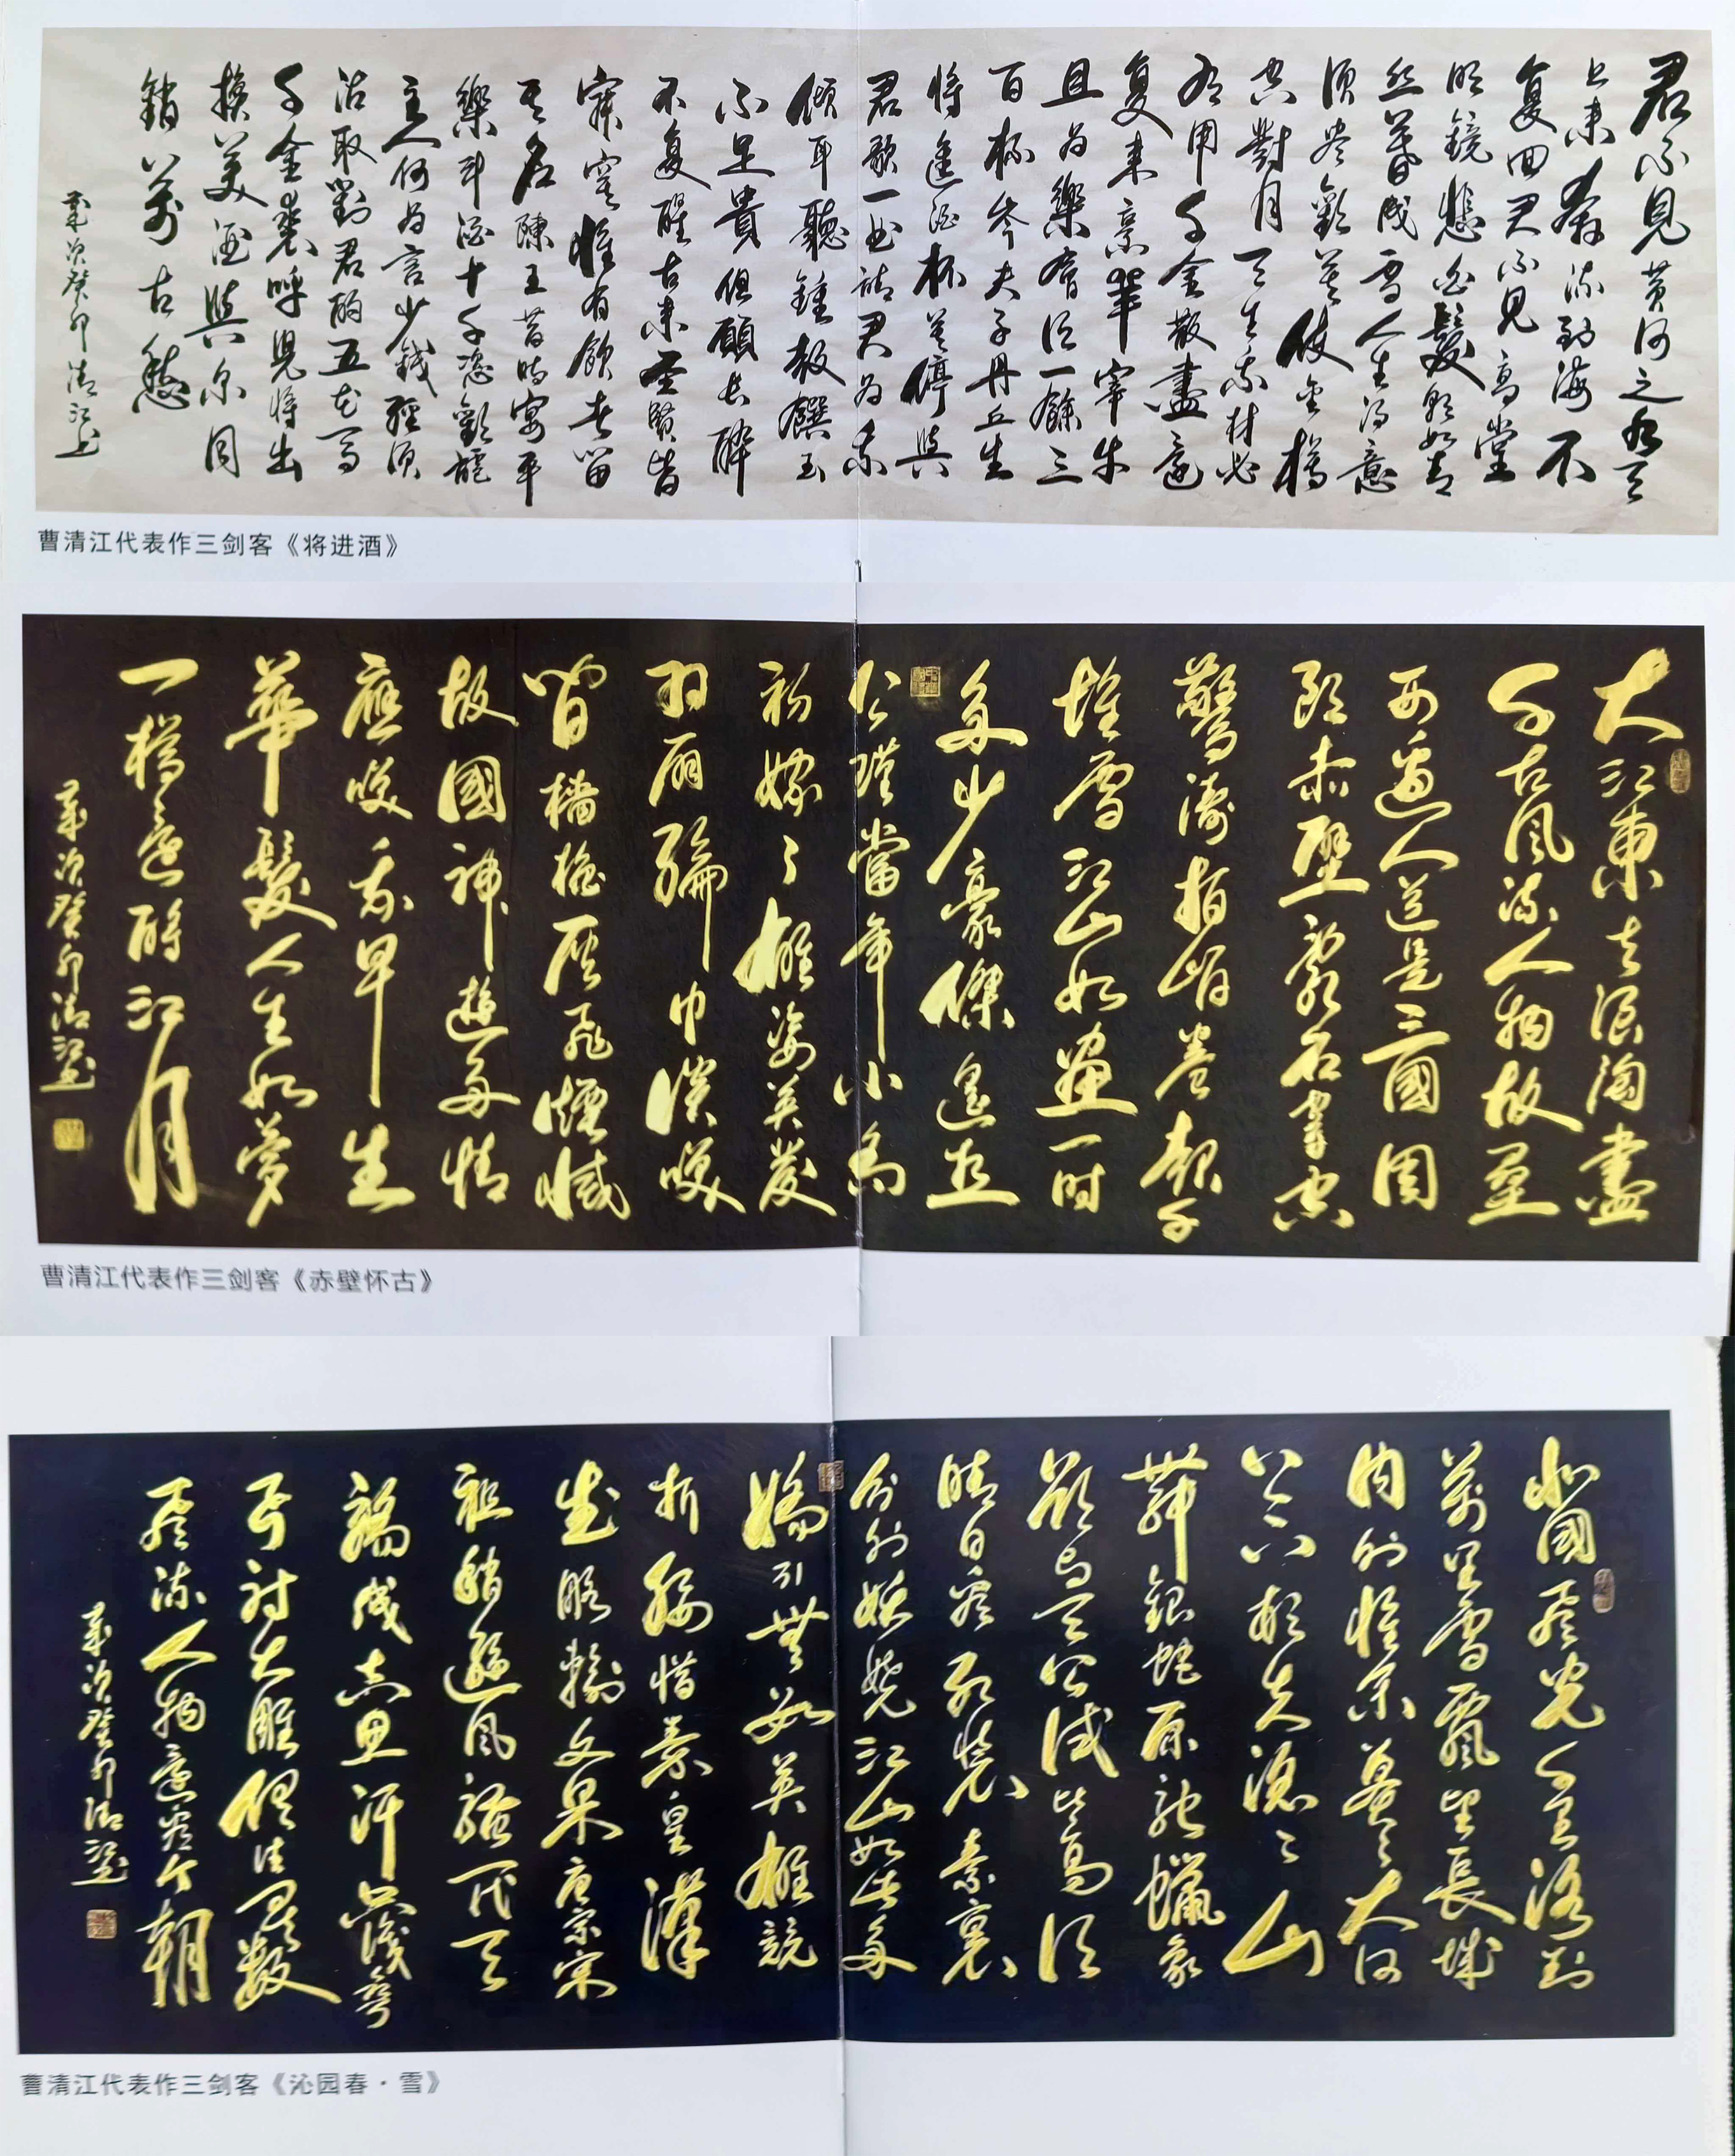 君不見黄河之水天
上来奔流到海不
复回君不見高堂
明鏡悲白髮朝如青
丝暮成雪人生得意
須尽歡莫使金樽
空對月天生我材必
有用千金散盡還
复来烹羊宰牛
且为樂會須一飲三
百杯岑夫子丹丘生
将進酒杯莫停與
君歌一曲請君为我
傾耳聽鐘鼓饌玉
不足貴但願長醉
不复醒古来聖賢皆
寂寞惟有飲者留
其名陳王昔時宴平
樂斗酒十千恣歡謔
主人何为言少錢徑須
沽取對君酌五花馬
千金裘呼兒将出
換美酒與尔同
銷萬古愁
歲次癸卯清江书
曹清江代表作三剑客《将进酒》
大江東去浪淘盡
千古風流人物故壘
西邊人道是三國周
郎赤壁亂石穿空
驚濤拍岸卷起千
堆雪江山如畫一时
多少豪傑遥想
公瑾當年小喬
初嫁了雄姿英发
羽扇綸巾談笑
間檣櫓灰飛煙滅
故國神遊多情
應笑我早生
華髮人生如夢
一樽還酹江月
歲次癸卯清江书
曹清江代表作三剑客《赤壁怀古》
北國風光千里冰封
萬里雪飄望長城
内外惟余莽莽大河
上下頓失滔滔山
舞銀蛇原馳蠟象
欲与天公試比高須
晴日看紅裝素裹
分外妖嬈江山如此多
嬌引無數英雄競
折腰惜秦皇漢
武略輸文采唐宗宋
祖稍遜風騷一代天
驕成吉思汗只識彎
弓射大雕俱往矣數
風流人物還看今朝
歲次癸卯清江书
曹清江代表作三剑客《沁园春·雪》